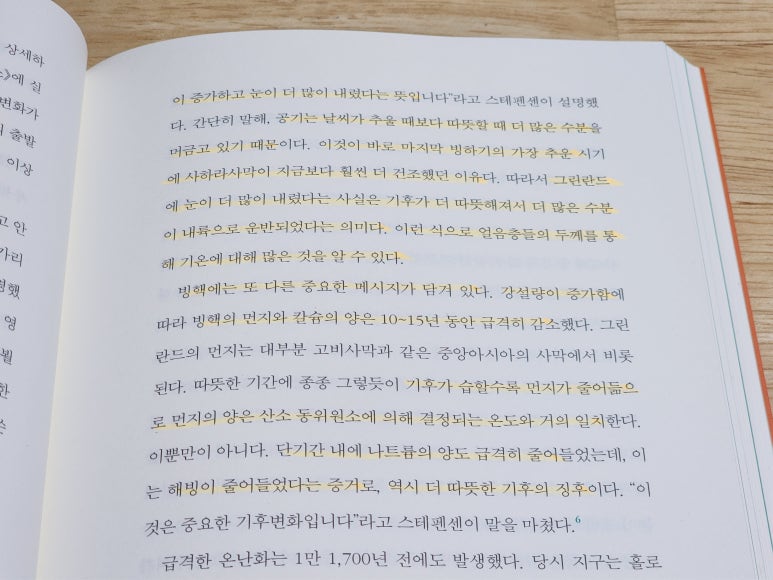 상세하
》에 실
변화가
출발
이상
고 안
가리
영
뷜
한
이 증가하고 눈이 더 많이 내렸다는 뜻입니다”라고 스테펜센이 설명했
다. 간단히 말해, 공기는 날씨가 추울 때보다 따뜻할 때 더 많은 수분을
머금고 있기 때문이다. 이것이 바로 마지막 빙하기의 가장 추운 시기
에 사하라사막이 지금보다 훨씬 더 건조했던 이유다. 따라서 그린란드
에 눈이 더 많이 내렸다는 사실은 기후가 더 따뜻해져서 더 많은 수분
이 내륙으로 운반되었다는 의미다. 이런 식으로 얼음층들의 두께를 통
해 기온에 대해 많은 것을 알 수 있다.
빙핵에는 또 다른 중요한 메시지가 담겨 있다. 강설량이 증가함에
따라 빙핵의 먼지와 칼슘의 양은 10~15년 동안 급격히 감소했다. 그린
란드의 먼지는 대부분 고비사막과 같은 중앙아시아의 사막에서 비롯
된다. 따뜻한 기간에 종종 그렇듯이 기후가 습할수록 먼지가 줄어듦으
로 먼지의 양은 산소 동위원소에 의해 결정되는 온도와 거의 일치한다.
이뿐만이 아니다. 단기간 내에 나트륨의 양도 급격히 줄어들었는데, 이
는 해빙이 줄어들었다는 증거로, 역시 더 따뜻한 기후의 징후이다. “이
것은 중요한 기후변화입니다”라고 스테펜센이 말을 마쳤다.⁶
급격한 온난화는 1만 1,700년 전에도 발생했다. 당시 지구는 홀로